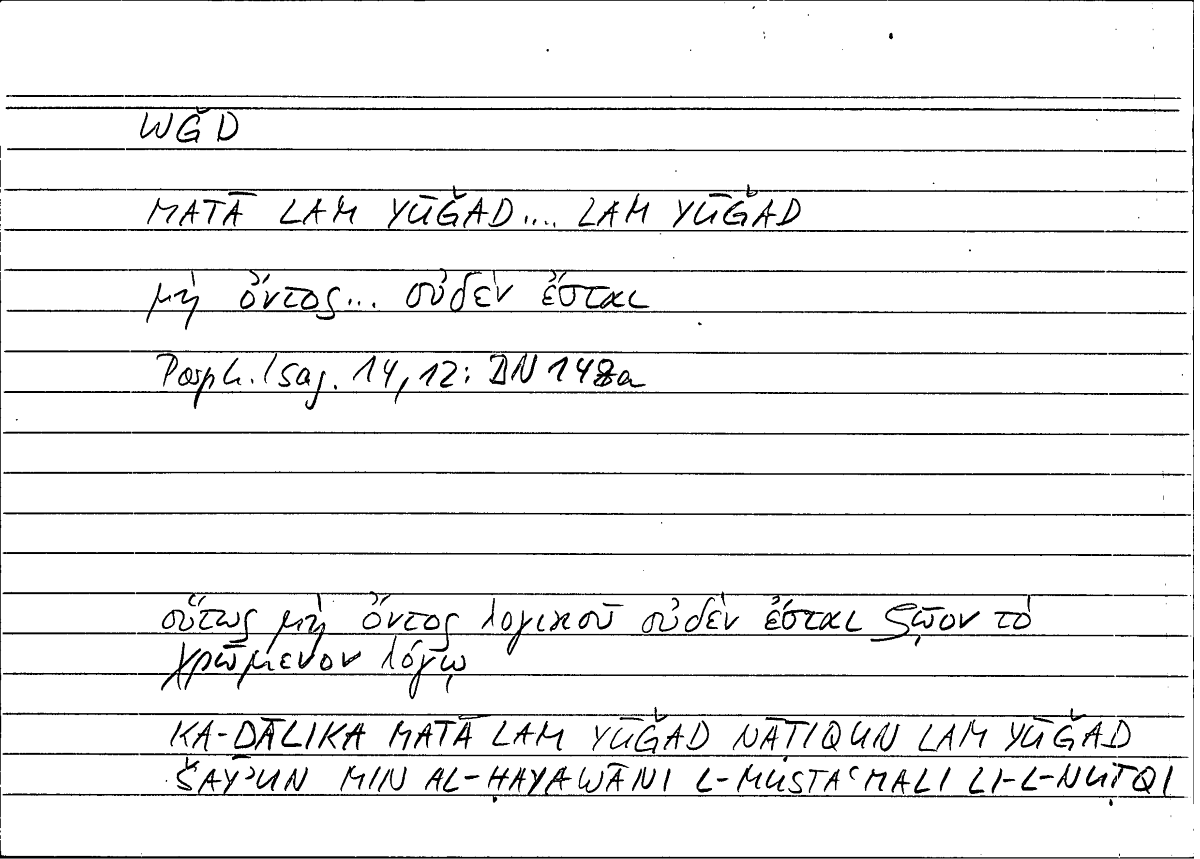 WǦD
MATĀ LAM YŪǦAD.... LAM YŪǦAD
μὴ ὄντος... οὐδὲν ἔσται
Porph. Isag. 14,12: DN 148a
οὕτως μὴ ὄντος λογικοῦ οὐδὲν ἔσται ζῷον τὸ
χρώμενον λόγῳ
KA-DĀLIKA MATĀ LAM YŪǦAD NĀṬIQUN LAM YŪǦAD
ŠAYʾUN MIN AL-ḤAYAWĀNI L-MUSTAʿMALI LI-L-NUṬQI